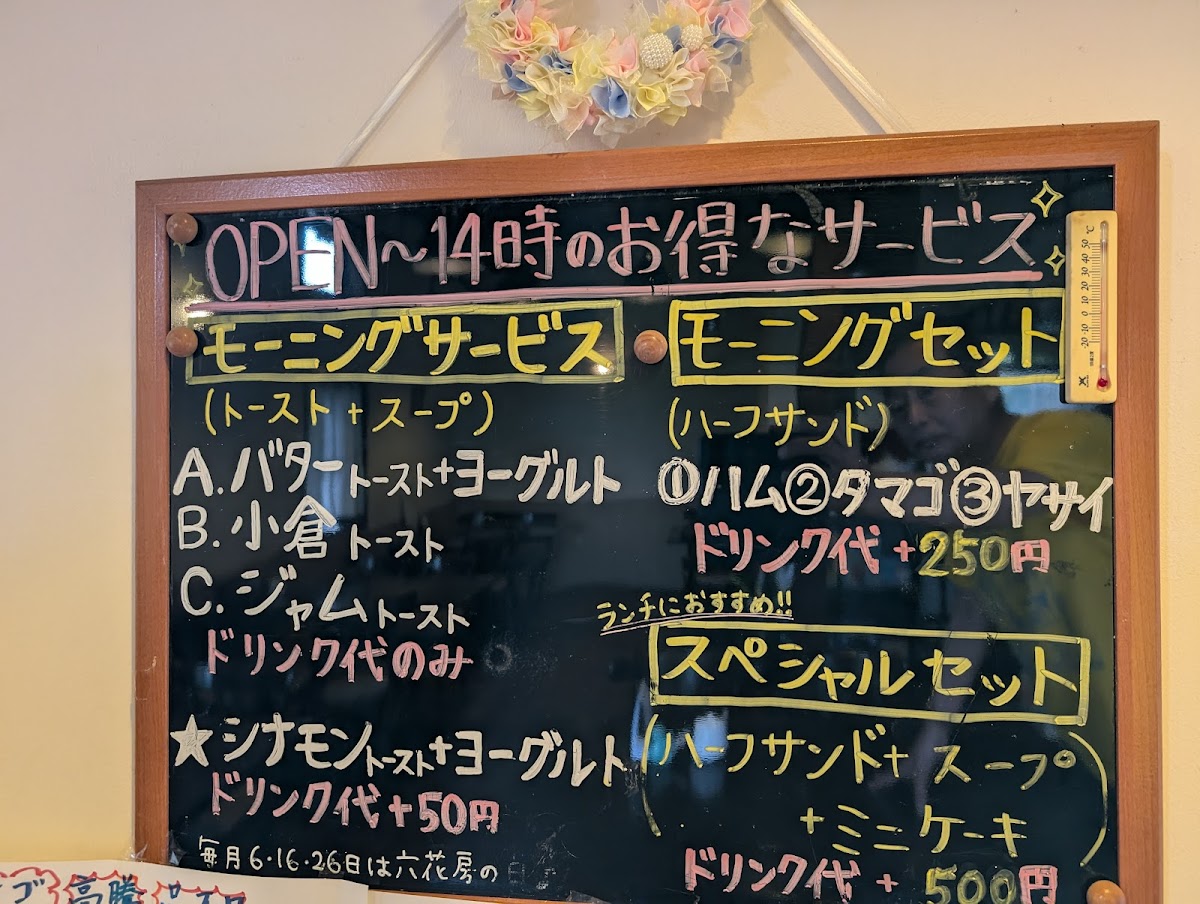 OPEN～14時のお得なサービス
モーニングサービス
(トースト+スープ)
A.バタートースト+ヨーグルト
B.小倉トースト
C.ジャムトースト
ドリンク代のみ
★シナモントースト+ヨーグルト
ドリンク代+50円
毎月6・16・26日は六花房の日
モーニングセット
(ハーフサンド)
①ハム②タマゴ③ヤサイ
ドリンク代+250円
ランチにおすすめ!!
スペシャルセット
(ハーフサンド+スープ
+ミニケーキ)
ドリンク代+500円
℃
50
40
30
20
10
0
-10
-20